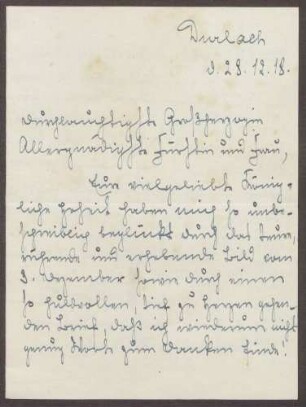 Durlach
d. 28.12.18.
Durchlauchtigste Großherzogin
Allergnädigste Fürstin und Frau,
Eure vielgeliebte König-
liche Hoheit haben mich so unbe-
schreiblich beglückt durch das teure,
rührende und erhebende Bild vom
3. Dezember sowie durch einen
so huldvollen, tief zu Herzen gehen-
den Brief, daß ich wiederum nicht
genug Worte zum Danken finde!